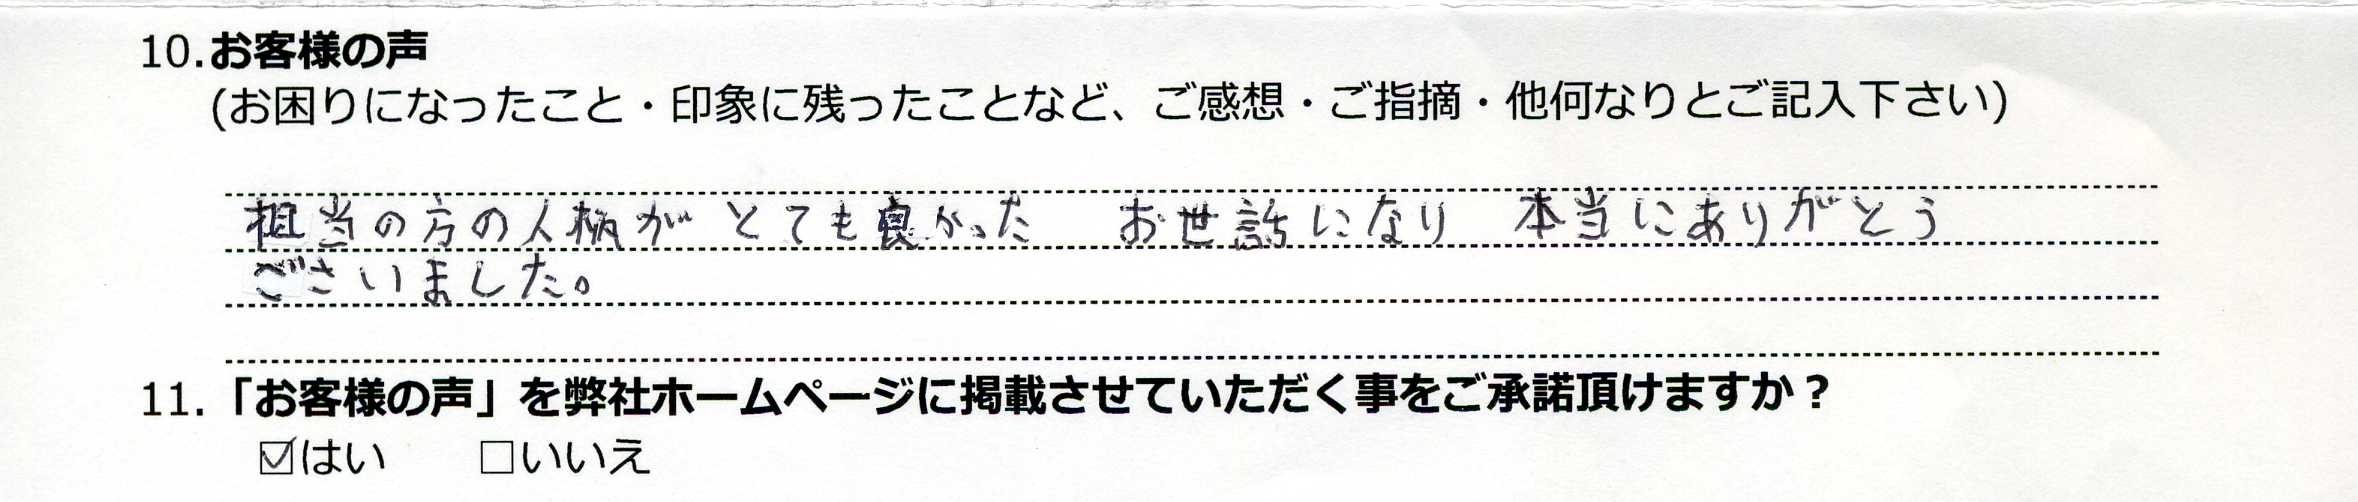 10.お客様の声
(お困りになったこと・印象に残ったことなど、ご感想・ご指摘・他何なりとご記入下さい)
担当の方の人柄がとても良かった お世話になり 本当にありがとう
ございました。
11.「お客様の声」を弊社ホームページに掲載させていただく事をご承諾頂けますか？
☑はい □いいえ